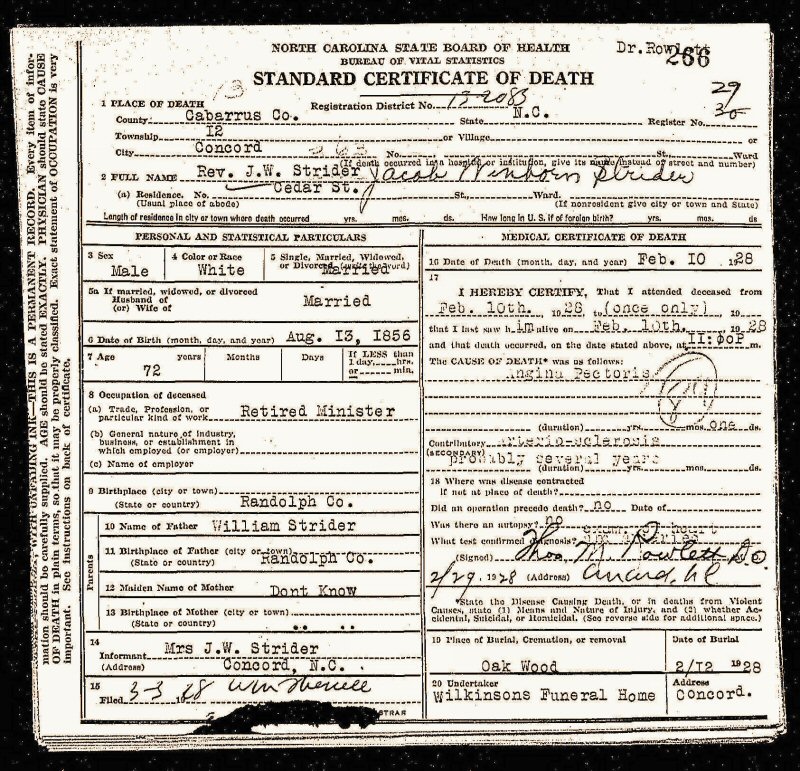 NORTH CAROLINA STATE BOARD OF HEALTH
BUREAU OF VITAL STATISTICS
STANDARD CERTIFICATE OF DEATH
Dr. Rowlett
266
13
1 PLACE OF DEATH
Registration District No. 13-2083
29
30
County Cabarrus Co. State N.C. Register No.
Township 12 or Village or
City Concord No. St. Ward
(If death occurred in a hospital or institution, give its name instead of street and number)
2 FULL NAME Rev. J.W. Strider Jacob Winborn Strider
(a) Residence. No. Cedar St. St., Ward.
(Usual place of abode) (If nonresident give city or town and State)
Length of residence in city or town where death occurred yrs. mos. ds How long in U. S. if of foreign birth? yrs. mos. ds
PERSONAL AND STATISTICAL PARTICULARS
3 Sex Male
4 Color or Race White
5 Single, Married, Widowed, or Divorced (write the word) Married
5a If married, widowed, or divorced
Husband of
(or) Wife of Married
6 Date of Birth (month, day, and year) Aug. I3, I856
7 Age years Months Days If LESS than
1 day, hrs.
or min.
72
8 Occupation of deceased
(a) Trade, Profession, or
particular kind of work Retired Minister
(b) General nature of industry,
business, or establishment in
which employed (or employer)
(c) Name of employer
9 Birthplace (city or town)
(State or country) Randolph Co.
Parents
10 Name of Father William Strider
11 Birthplace of Father (city or town)
(State or country) Randolph Co.
12 Maiden Name of Mother Dont Know
13 Birthplace of Mother (city or town)
(State or country) .. ..
14
Informant Mrs J.W. Strider
(Address) Concord, N.C.
15
Filed 3-3 1928
STRAR
MEDICAL CERTIFICATE OF DEATH
16 Date of Death (month, day, and year) Feb. IO 1928
17
I HEREBY CERTIFY, That I attended deceased from
Feb. IOth. 1928 to (once only) 19
that I last saw him alive on Feb. 10th. 1928
and that death occurred, on the date stated above, at II:00P m.
The CAUSE OF DEATH* was as follows:
Angina Pectoris
(duration) yrs. mos. one ds.
Contributory arterio-sclerosis
(SECONDARY) probably several years
(duration) yrs. mos. ds.
18 Where was disease contracted
If not at place of death?
Did an operation precede death? no Date of
Was there an autopsy? no
What test confirmed diagnosis? exam. of heart
and arteries
(Signed) Thos M. Rowlett
2/29, 1928 (Address) Concord, NC
*State the Disease Causing Death, or in deaths from Violent
Causes, state (1) Means and Nature of Injury, and (2) whether Ac-
cidental, Suicidal, or Homicidal. (See reverse side for additional space.)
19 Place of Burial, Cremation, or removal Date of Burial
Oak Wood 2/I2 1928
20 Undertaker Address
Wilkinsons Funeral Home Concord.
WITH UNFADING INK—THIS IS A PERMANENT RECORD. Every item of infor-
mation should be carefully supplied. AGE should be stated EXACTLY. PHYSICIANS should state CAUSE
OF DEATH in plain terms, so that it may be properly classified. Exact statement of OCCUPATION is very
important. See instructions on back of certificate.